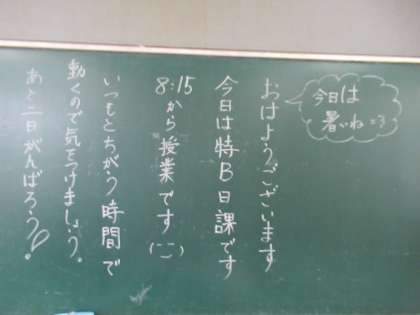 今日は
暑いね=3
おはようございます
今日は特B日課です
8:15から授業です(ニ)
いつもとちがう時間で
動くので気をつけましょう。
あと二日がんばろう!